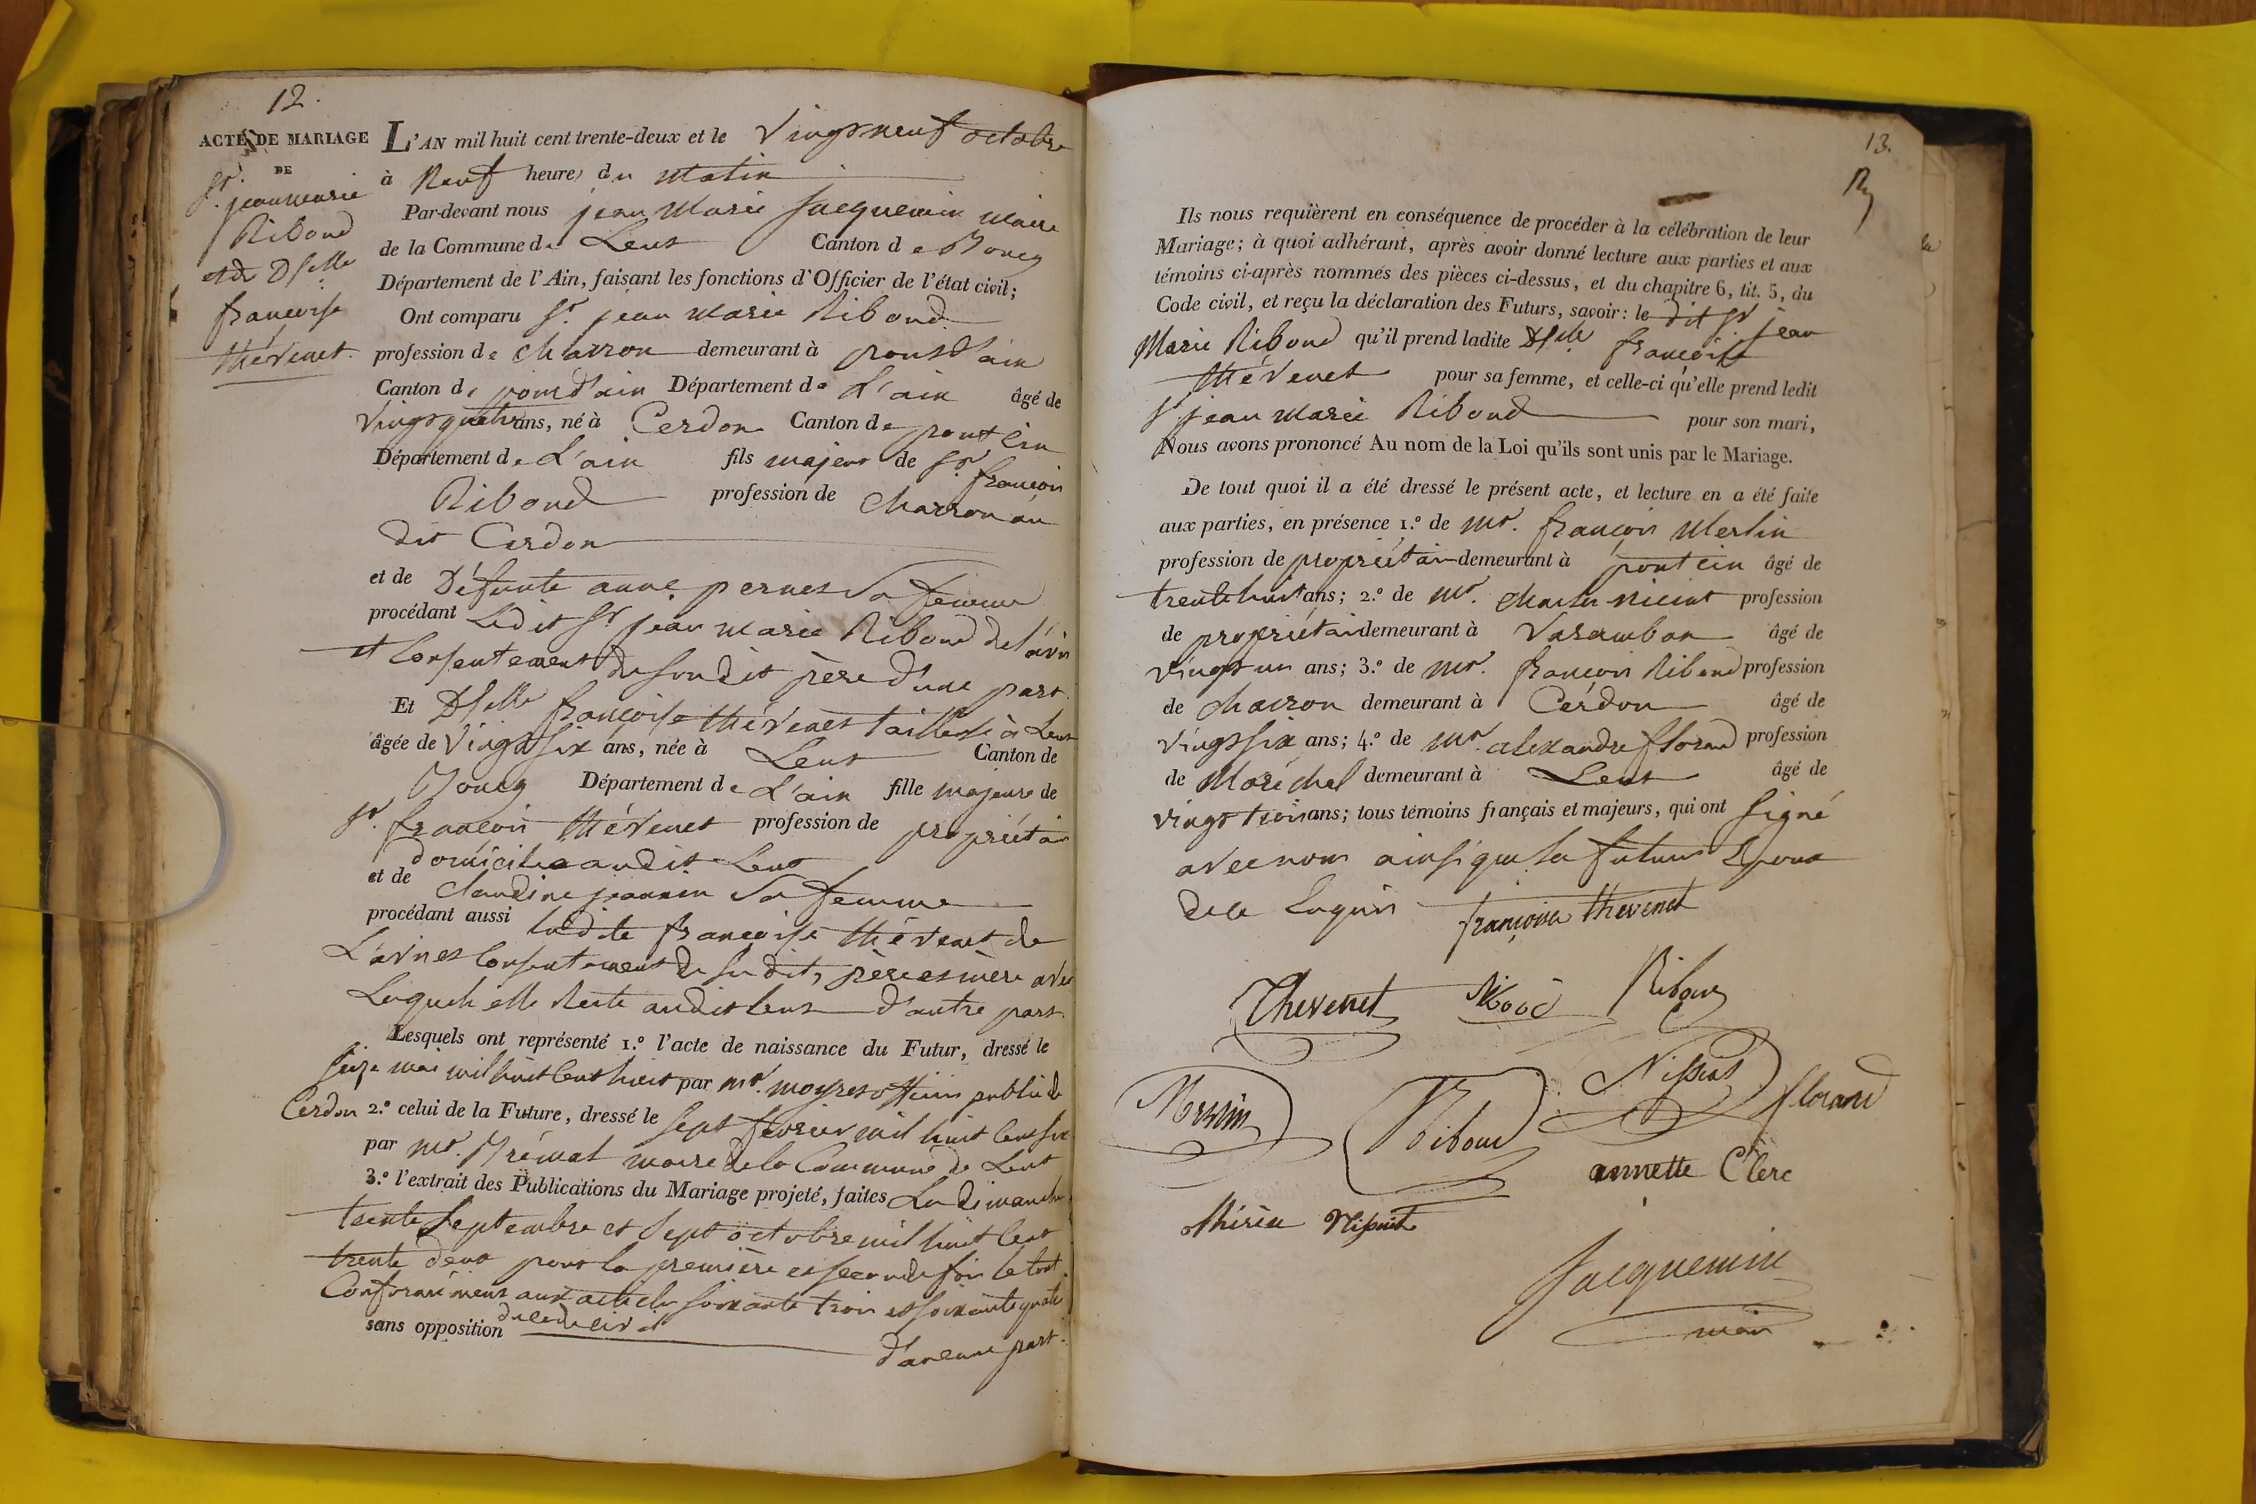 12.
ACTE DE MARIAGE
DE
Sr. jean marie
Riboud
et de Dselle
françoise
thévenet.
L'AN mil huit cent trente-deux et le vingt neuf octobre
à Neuf heures du Matin
Par-devant nous jean Marie Jacquemin maire
de la Commune de Lent Canton de Bourg
Département de l'Ain, faisant les fonctions d'Officier de l'état civil;
Ont comparu Sr. jean Marie Riboud
profession de charron demeurant à pont d'ain
Canton de pont d'ain Département de L'ain âgé de
vingt quatre ans, né à Cerdon Canton de pont cin
Département de L'ain fils majeur de Sr. françois
Riboud profession de charron au
dit Cerdon
et de Défunte anne pernet sa femme
procédant Ledit Sr. jean Marie Riboud de l'avis
et Consentement de son dit père d'une part.
Et Dselle françoise thévenet tailleuse à Lent
âgée de vingt six ans, née à Lent Canton de
Bourg Département de L'ain fille majeure de
Sr. françois thévenet profession de propriétaire
domicilié audit Lent
et de Claudine jeannin sa femme
procédant aussi ladite françoise thévenet de
L'avis et Consentement de ses dits père et mère avec
Lesquels elle Reste audit Lent d'autre part.
Lesquels ont représenté 1.º l'acte de naissance du Futur, dressé le
seize mai mil huit cent huit par mr. moyret officier public de
Cerdon 2.º celui de la Future, dressé le sept février mil huit cent six
par mr. maire de la Commune de Lent
3.º l'extrait des Publications du Mariage projeté, faites Les dimanches
trente septembre et sept octobre mil huit cent
trente deux pour la première et seconde fois le tout
Conformément aux articles soixante trois et soixante quatre
du code civil
sans opposition d'aucune part.
13.
Ils nous requièrent en conséquence de procéder à la célébration de leur
Mariage; à quoi adhérant, après avoir donné lecture aux parties et aux
témoins ci-après nommés des pièces ci-dessus, et du chapitre 6, tit. 5, du
Code civil, et reçu la déclaration des Futurs, savoir: le dit Sr jean
Marie Riboud qu'il prend ladite Dselle françoise
thévenet pour sa femme, et celle-ci qu'elle prend ledit
Sr jean Marie Riboud pour son mari,
Nous avons prononcé Au nom de la Loi qu'ils sont unis par le Mariage.
De tout quoi il a été dressé le présent acte, et lecture en a été faite
aux parties, en présence 1.º de mr. françois Merlin
profession de propriétaire demeurant à pont cin âgé de
trente huit ans; 2.º de mr. profession
de propriétaire demeurant à âgé de
vingt un ans; 3.º de mr. françois Riboud profession
de charron demeurant à Cerdon âgé de
vingt six ans; 4.º de mr. alexandre florand profession
de Maréchal demeurant à Lent âgé de
vingt trois ans; tous témoins français et majeurs, qui ont signé
avec nous ainsi que les futurs Epoux
de ce Requis
françoise thevenet
Thevenet
Riboud
Merlin
Riboud
florand
annette Clerc
Jacquemin
maire